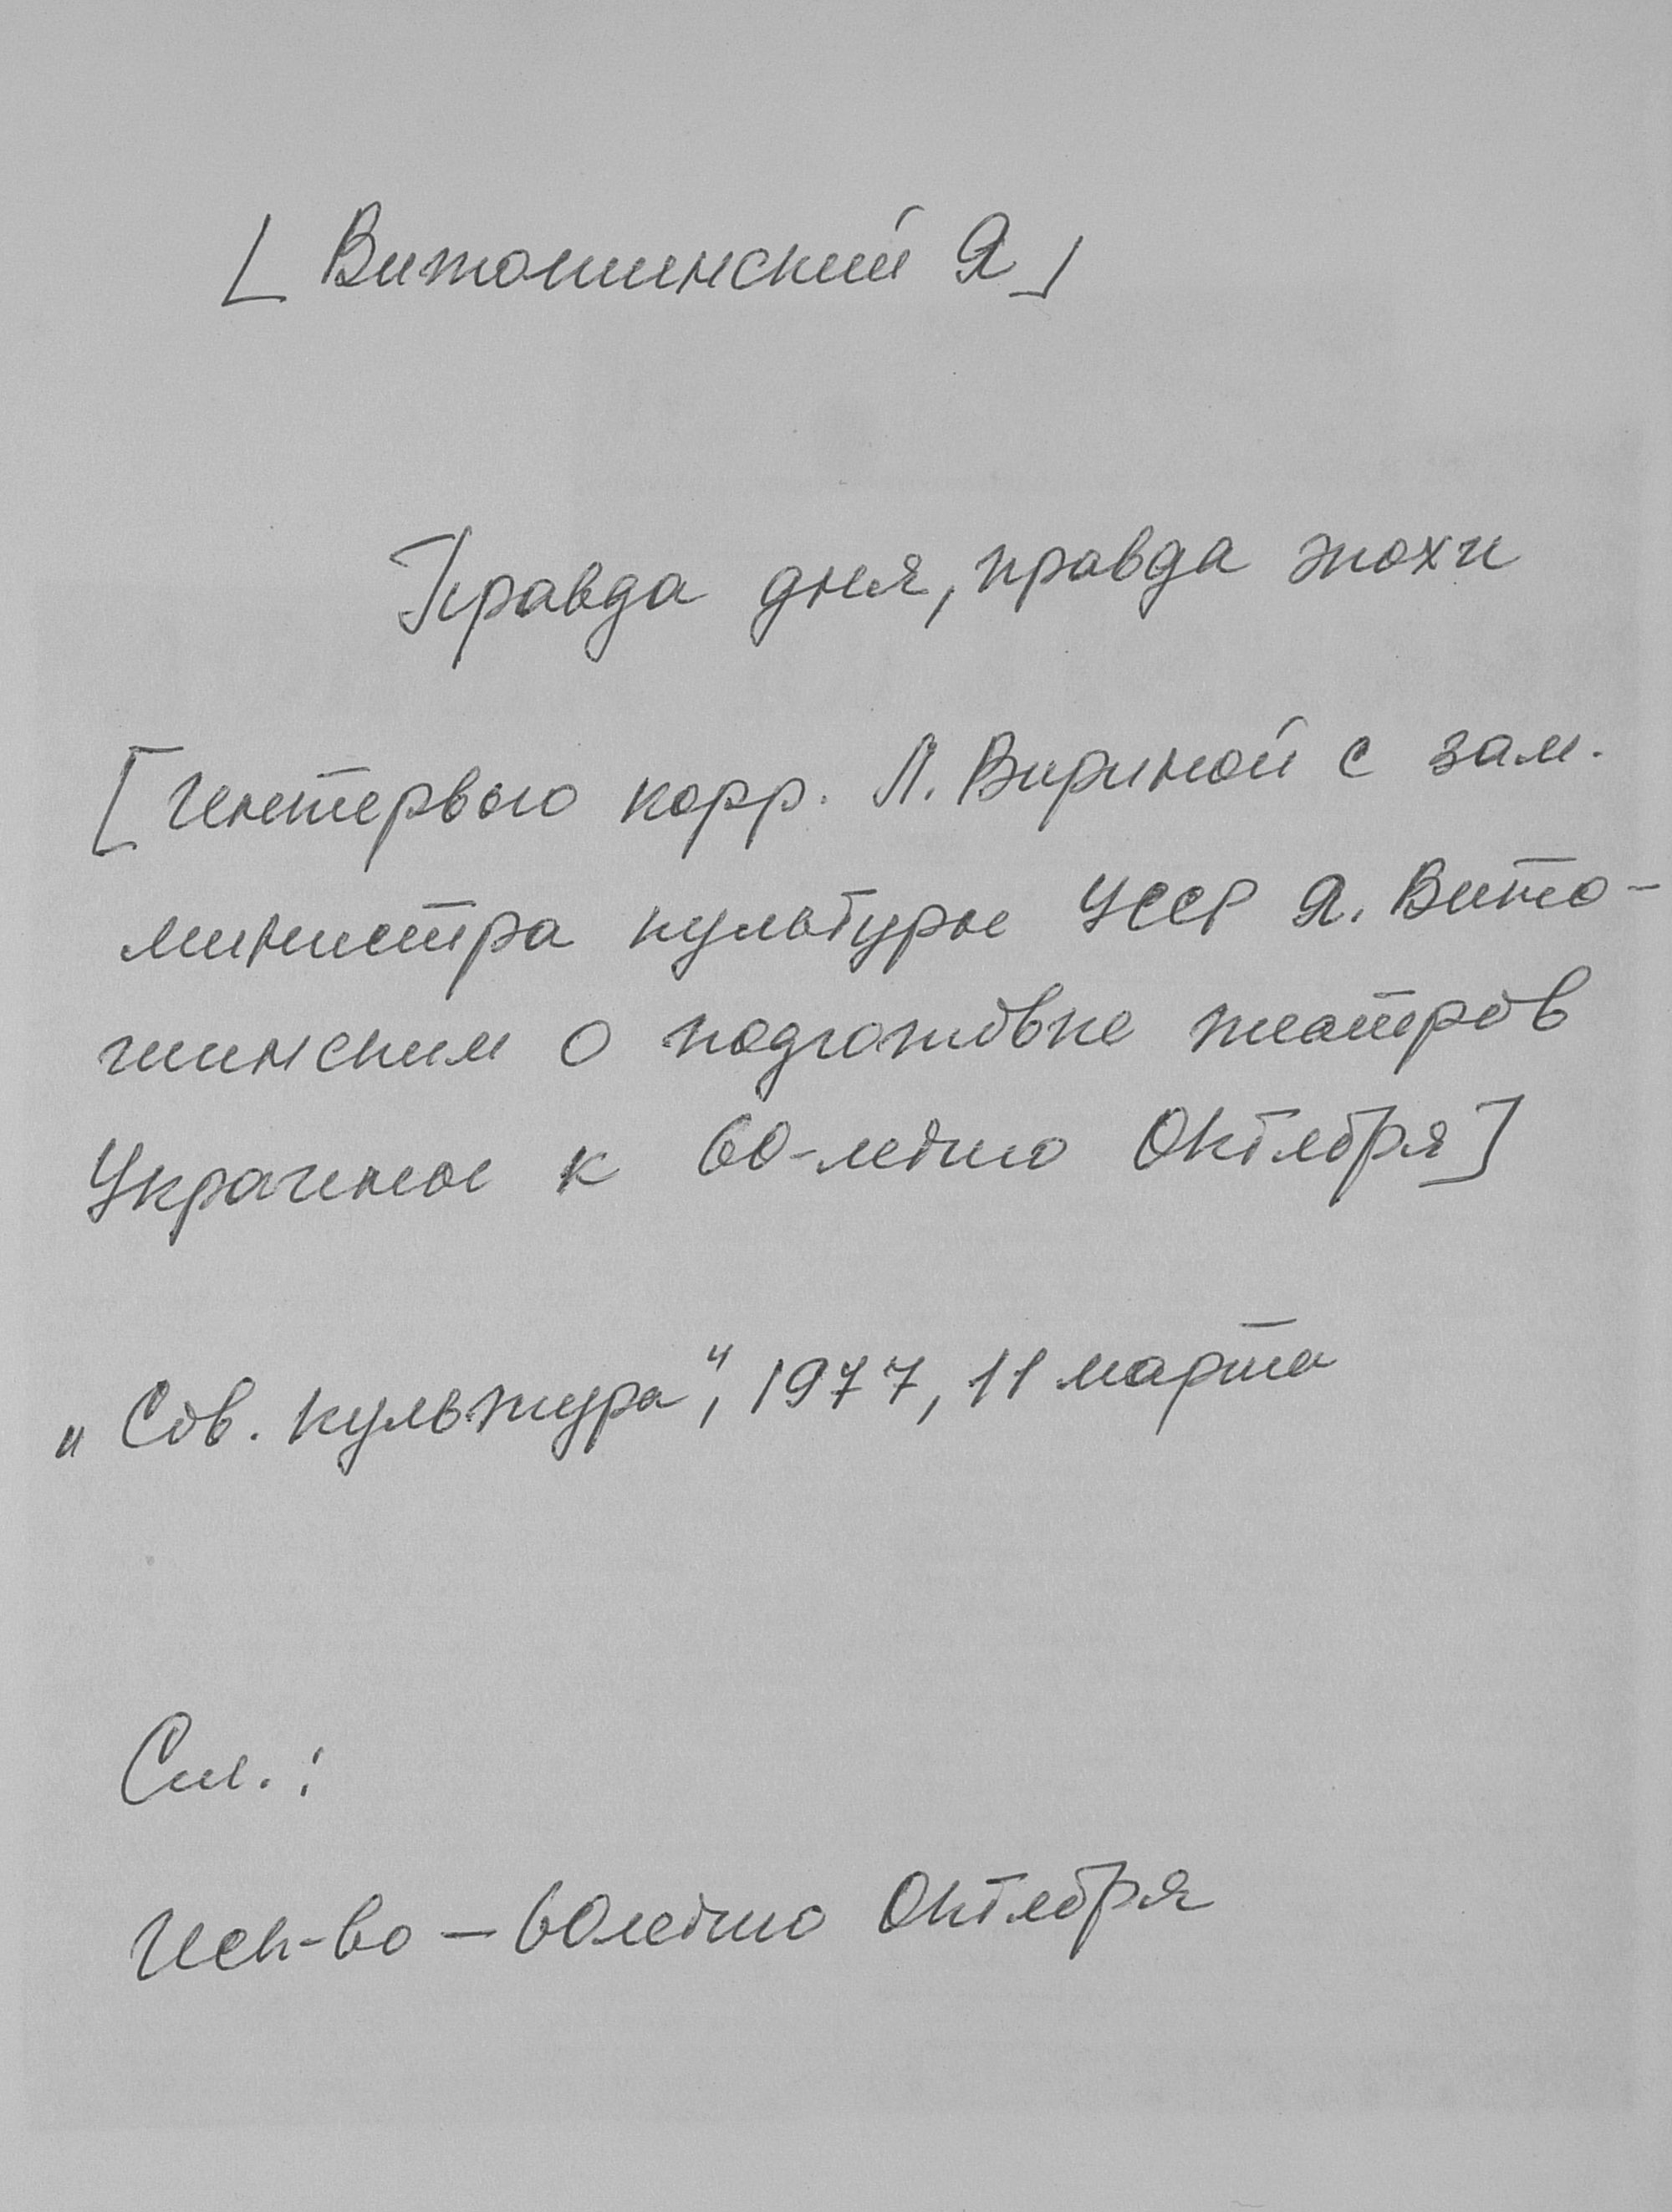 [Витошинский Я]
Правда дня, правда эпохи
[Интервью корр. Л. Вириной с зам.
министра культуры УССР Я. Вито-
шинским о подготовке театров
Украины к 60-летию Октября]
„Сов. культура", 1977, 11 марта
См.:
Иск-во — 60летию Октября